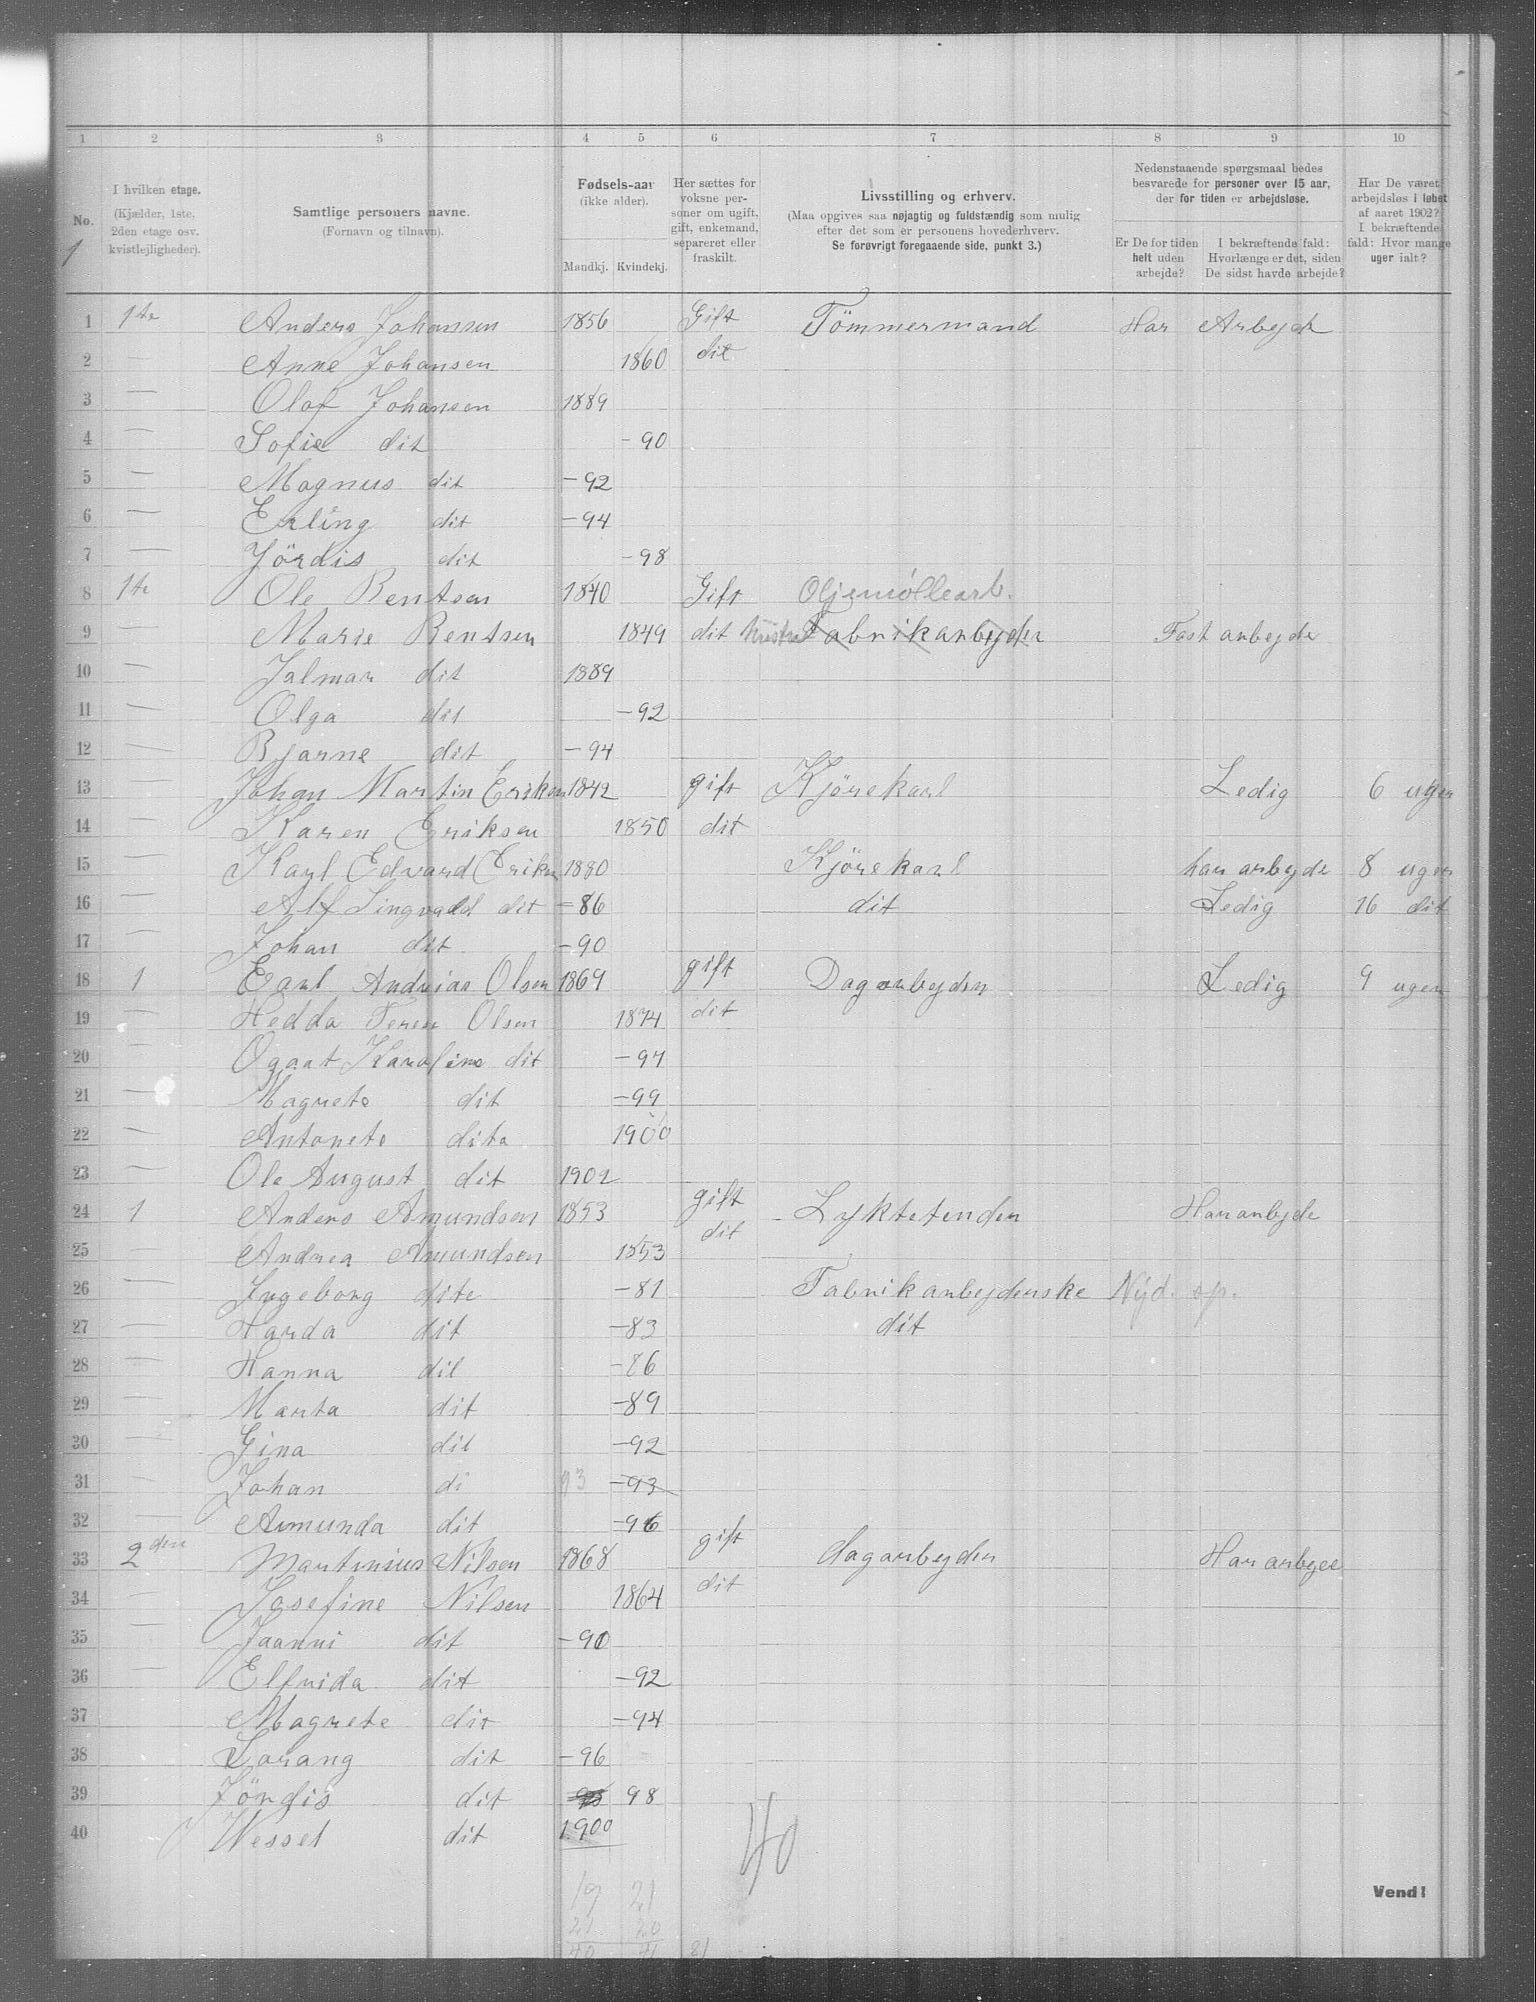 1 2 3 4 5 6 7 8 9 10
No. I hvilken etage. (Kjælder, 1ste, 2den etage osv. kvistlejligheder). Samtlige personers navne. (Fornavn og tilnavn). Fødsels-aar (ikke alder). Mandkj. Kvindekj. Her sættes for voksne personer om ugift, gift, enkemand, separeret eller fraskilt. Livsstilling og erhverv. (Maa opgives saa nøjagtig og fuldstændig som mulig efter det som er personens hovederhverv. Se forøvrigt foregaaende side, punkt 3.) Nedenstaaende spørgsmaal bedes besvarede for personer over 15 aar, der for tiden er arbejdsløse. Er De for tiden helt uden arbejde? I bekræftende fald: Hvorlænge er det, siden De sidst havde arbejde? Har De været arbejdsløs i løbet af aaret 1902? I bekræftende fald: Hvor mange uger ialt?
1
1 1te Anders Johansen 1856 Gift Tömmermand Har Arbejde
2 — Anne Johansen 1860 dit
3 — Olaf Johansen 1889
4 — Sofie dit -90
5 — Magnus dit -92
6 — Erling dit -94
7 — Jördis dit -98
8 1te Ole Bentsen 1840 Gift Oljemøllearb.
9 — Marie Bentsen 1849 dit Hustru Fabrikarbejder Fast arbejde
10 — Jalmar dit 1889
11 — Olga dit -92
12 — Bjarne dit -94
13 — Johan Martin Eriksen 1842 gift Kjörekarl Ledig 6 uger
14 — Karen Eriksen 1850 dit
15 — Karl Edvard Eriksen 1880 Kjörekarl har arbejde 8 uger
16 — Alf Singvald dit -86 dit Ledig 16 dit
17 — Johan dit -90
18 1 Carl Andrias Olsen 1869 gift Dagarbejder Ledig 9 uger
19 — Hedda Olsen 1874 dit
20 — Karoline dit -97
21 — Magrete dit -99
22 — Antonete dite 1900
23 — Ole August dit 1902
24 1 Anders Amundsen 1853 gift Lyktetender Har arbejde
25 — Andrea Amundsen 1853 dit
26 — Ingeborg dite -81 Fabrikarbejderske
27 — Harda dit -83 dit
28 — Hanna dit -86
29 — Marta dit -89
30 — Gina dit -92
31 — Johan di 93 -93
32 — Amunda dit -96
33 2den Martinius Nilsen 1868 gift dagarbejder Har arbeje
34 — Josefine Nilsen 1864 dit
35 — Jaanni dit -90
36 — Elfrida dit -92
37 — Magrete dit -94
38 — Lorang dit -96
39 — Jördis dit 98
40 Wessel dit 1900
40
19 21
21 20
40 41 81
Vend!